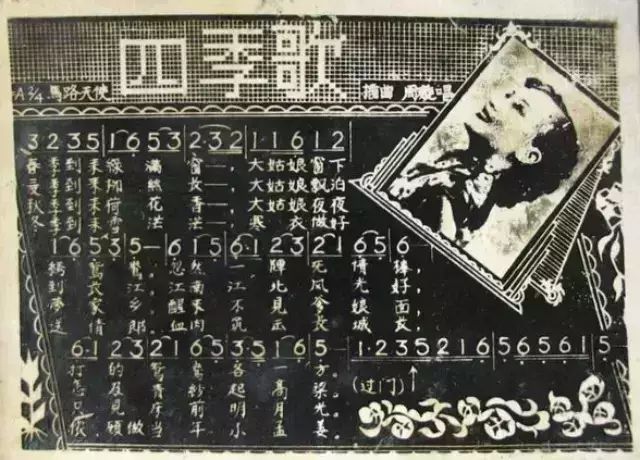 四季歌
A 2/4 馬路天使 插曲 周璇唱
3 2 3 5 1 6 5 3 2·3 2 1·1 6 1 2
春季到来綠滿窗一，大姑娘窗下
夏季到来柳絲長一，大姑娘飄泊
秋季到来荷花香一，大姑娘夜夜
冬季到来雪茫茫一，寒衣做好
1 6 5 3 5 — 6 1 5 6·1 2 3 2 1 6 5 6
鴛鴦，忽然一陣 情棒，
到長江，江南江北風光好，
夢家鄉，醒 不見爹娘面，
送情郎，血肉筑 長城
6·1 2 3 2 1 6 5 3·5 1 6 5 — 1·2 3 5 2 1 6 5 6 5 6 1 5
打的鴛鴦各一方。
怎及青紗起高粱。
只見床前明月光。
願做當年小孟姜。
(过门)